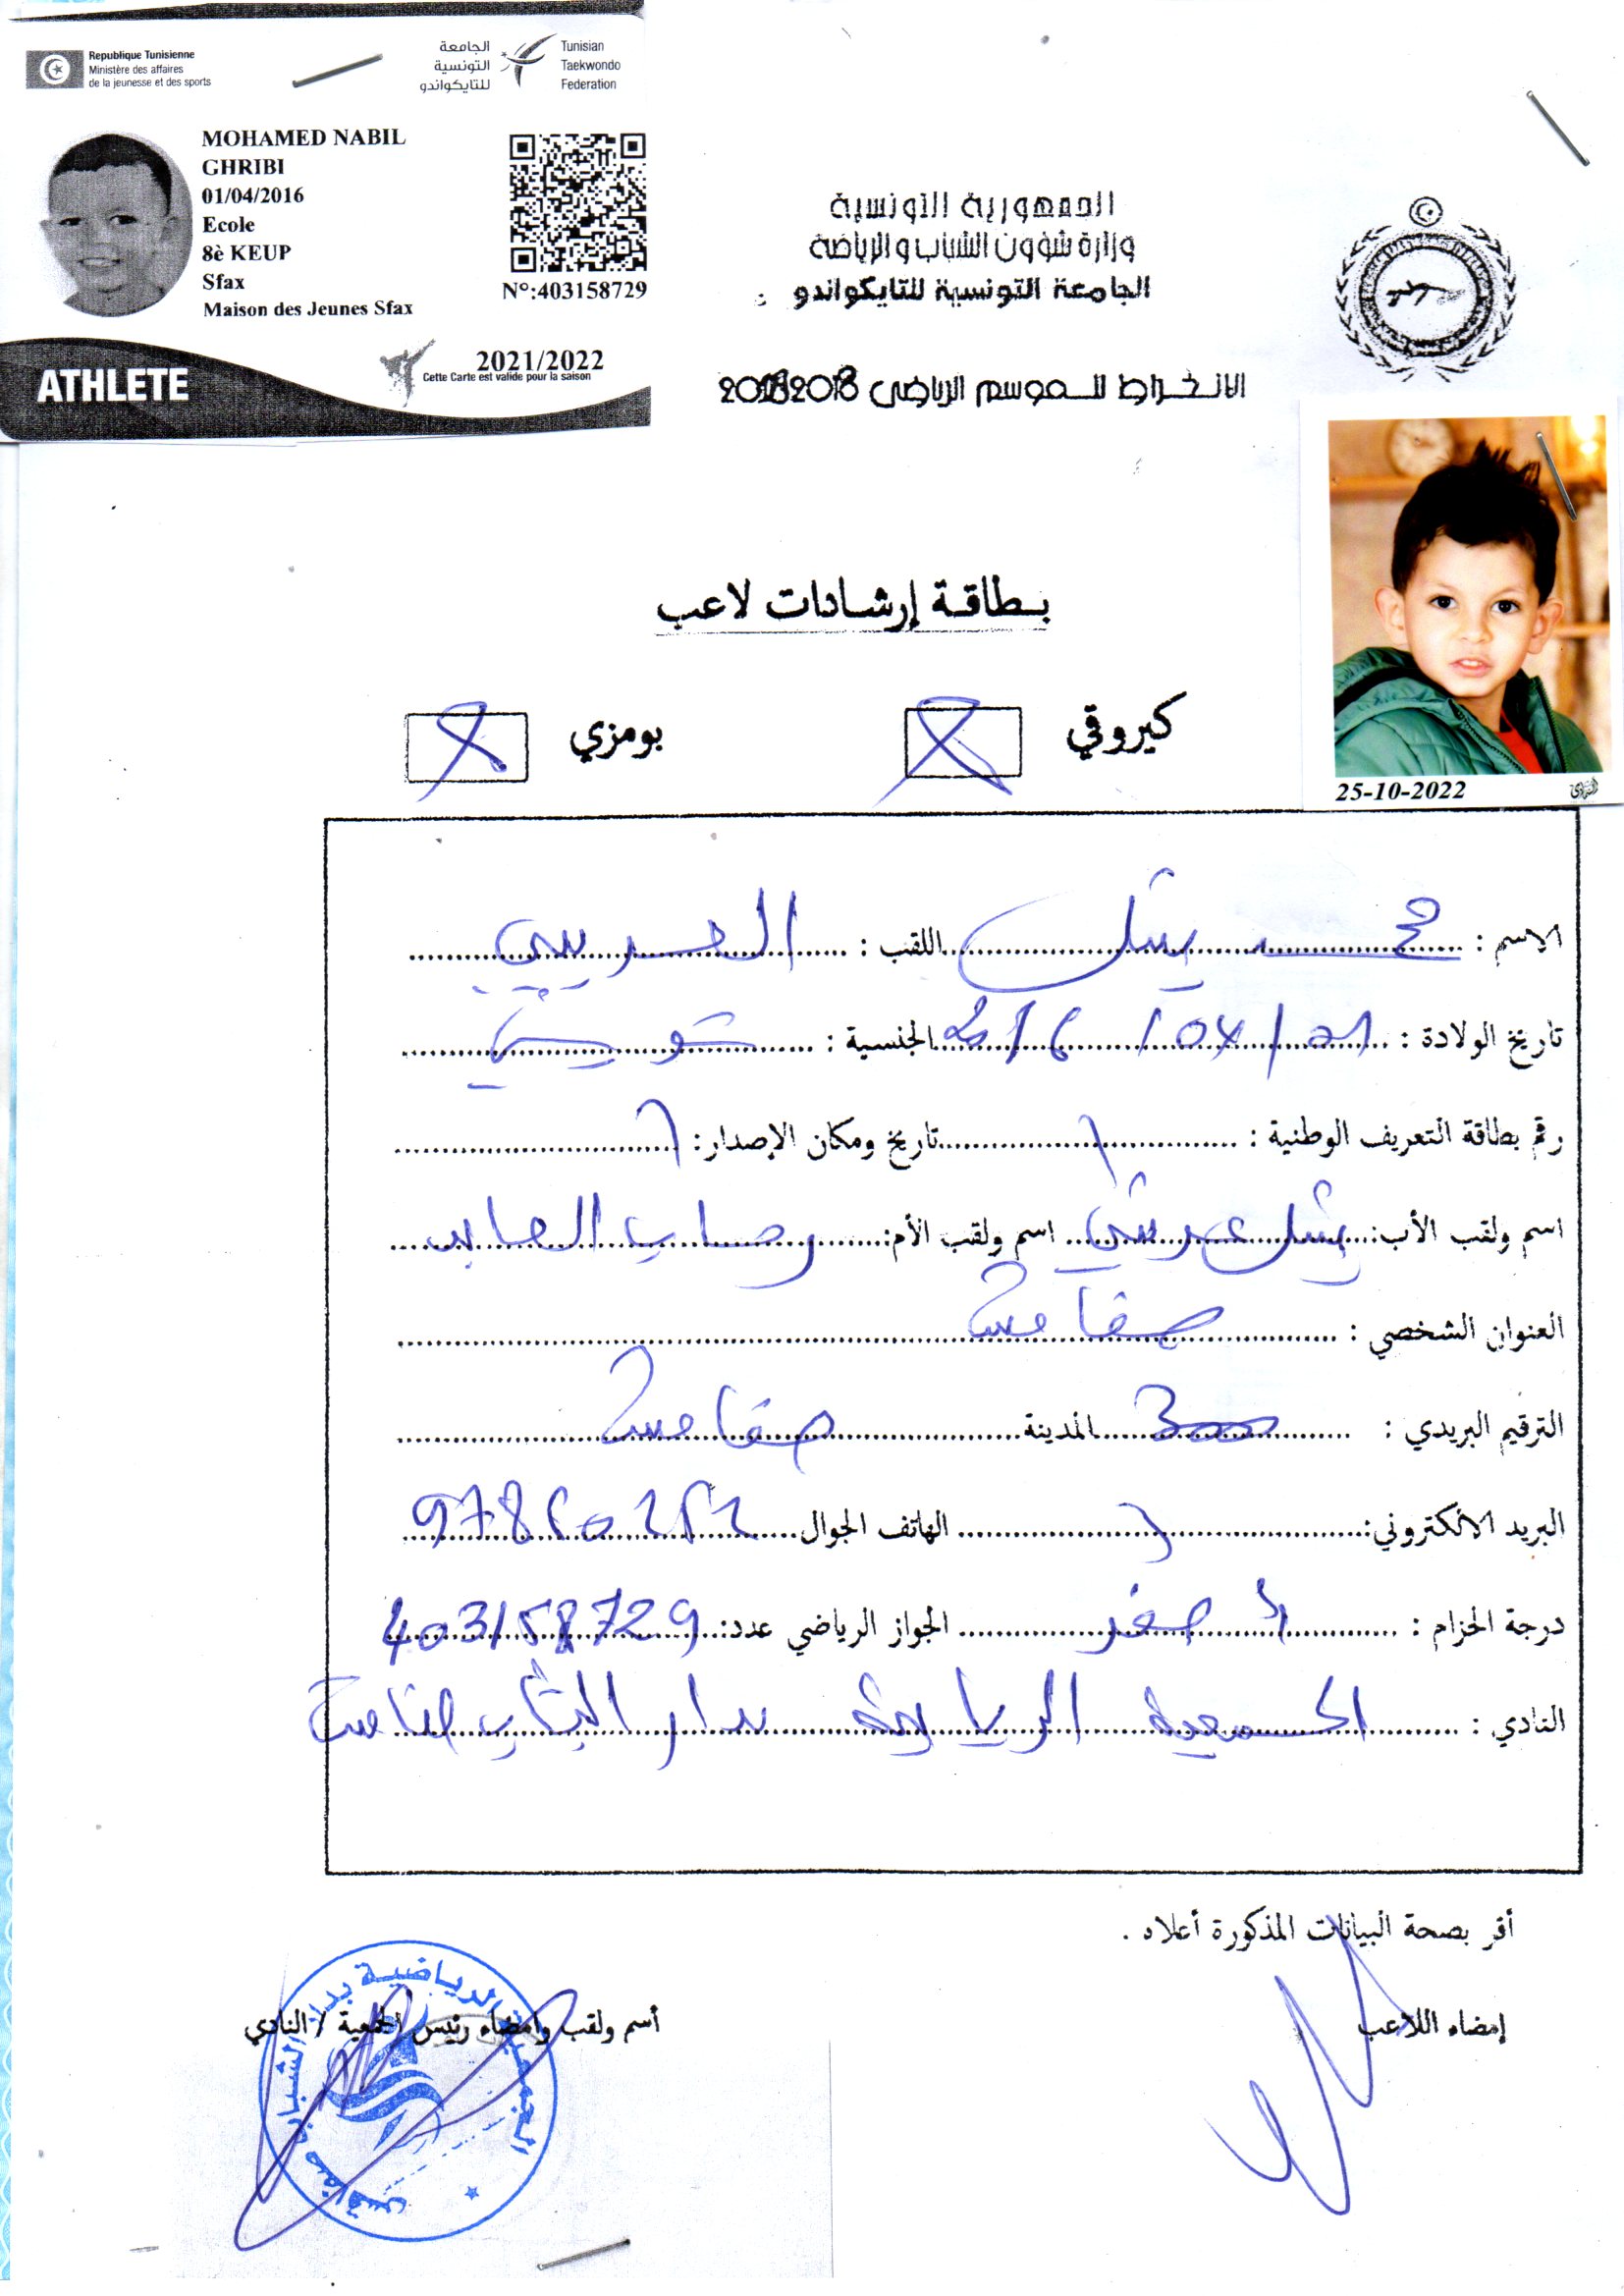 Republique Tunisienne
Ministère des affaires
de la jeunesse et des sports
الجامعة
التونسية
للتايكواندو
Tunisian
Taekwondo
Federation
MOHAMED NABIL
GHRIBI
01/04/2016
Ecole
8è KEUP
Sfax
Maison des Jeunes Sfax
N°:403158729
ATHLETE
2021/2022
Cette Carte est valide pour la saison
الجمهورية التونسية
وزارة شؤون الشباب والرياضة
الجامعة التونسية للتايكواندو
الانخراط للموسم الرياضي
25-10-2022
بطاقة إرشادات لاعب
كيروقي
بومزي
الاسم : محمد نبيل اللقب :
تاريخ الولادة : 01/04/2016 الجنسية : تونسي
رقم بطاقة التعريف الوطنية : تاريخ ومكان الإصدار:
اسم ولقب الأب: اسم ولقب الأم:
العنوان الشخصي : صفاقس
الترقيم البريدي : 3000 المدينة صفاقس
البريد الالكتروني: الهاتف الجوال
درجة الحزام : اصفر الجواز الرياضي عدد: 403158729
النادي : الجمعية الرياضية بدار الشباب صفاقس
أقر بصحة البيانات المذكورة أعلاه .
إمضاء اللاعب
أسم ولقب وامضاء رئيس الجمعية / النادي
الجمعية الرياضية بدار الشباب صفاقس